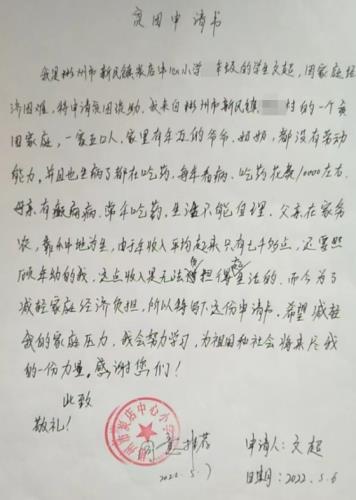 贫困申请书
我是彬州市新民镇炭店中心小学 年级的学生文超,因家庭经
济困难,特申请贫困资助。我来自彬州市新民镇 村的一个贫
困家庭,一家五口人,家里有年迈的爷爷、奶奶,都没有劳动
能力。并且也生病了都在吃药,每年看病、吃药花费10000左右。
母亲有癫痫病、常年吃药,生活不能自理,父亲在家务
农,靠种地为生,由于年收入平均起来只有七千多点,还要照
顾年幼的我,这点收入是无法负担得起生活的,而今为了
减轻家庭经济负担,所以特写下这份申请书。希望减轻
我的家庭压力,我会努力学习,为祖国和社会将来尽我
的一份力量。感谢您们!
此致
敬礼!
州市炭店中心小学
同意推荐
2022.5.7
申请人:文超
日期:2022.5.6